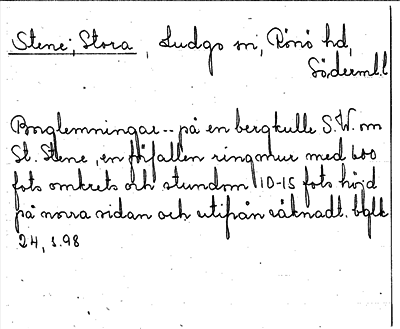 Stene, Stora, Ludgo sn, Rönö hd,
Söderml.l
Borglemningar -- på en bergkulle S.W. om
St. Stene, en förfallen ringmur med 600
fots omkrets och stundom 10-15 fots höjd
på norra sidan och utifrån räknadt.
24, s. 98